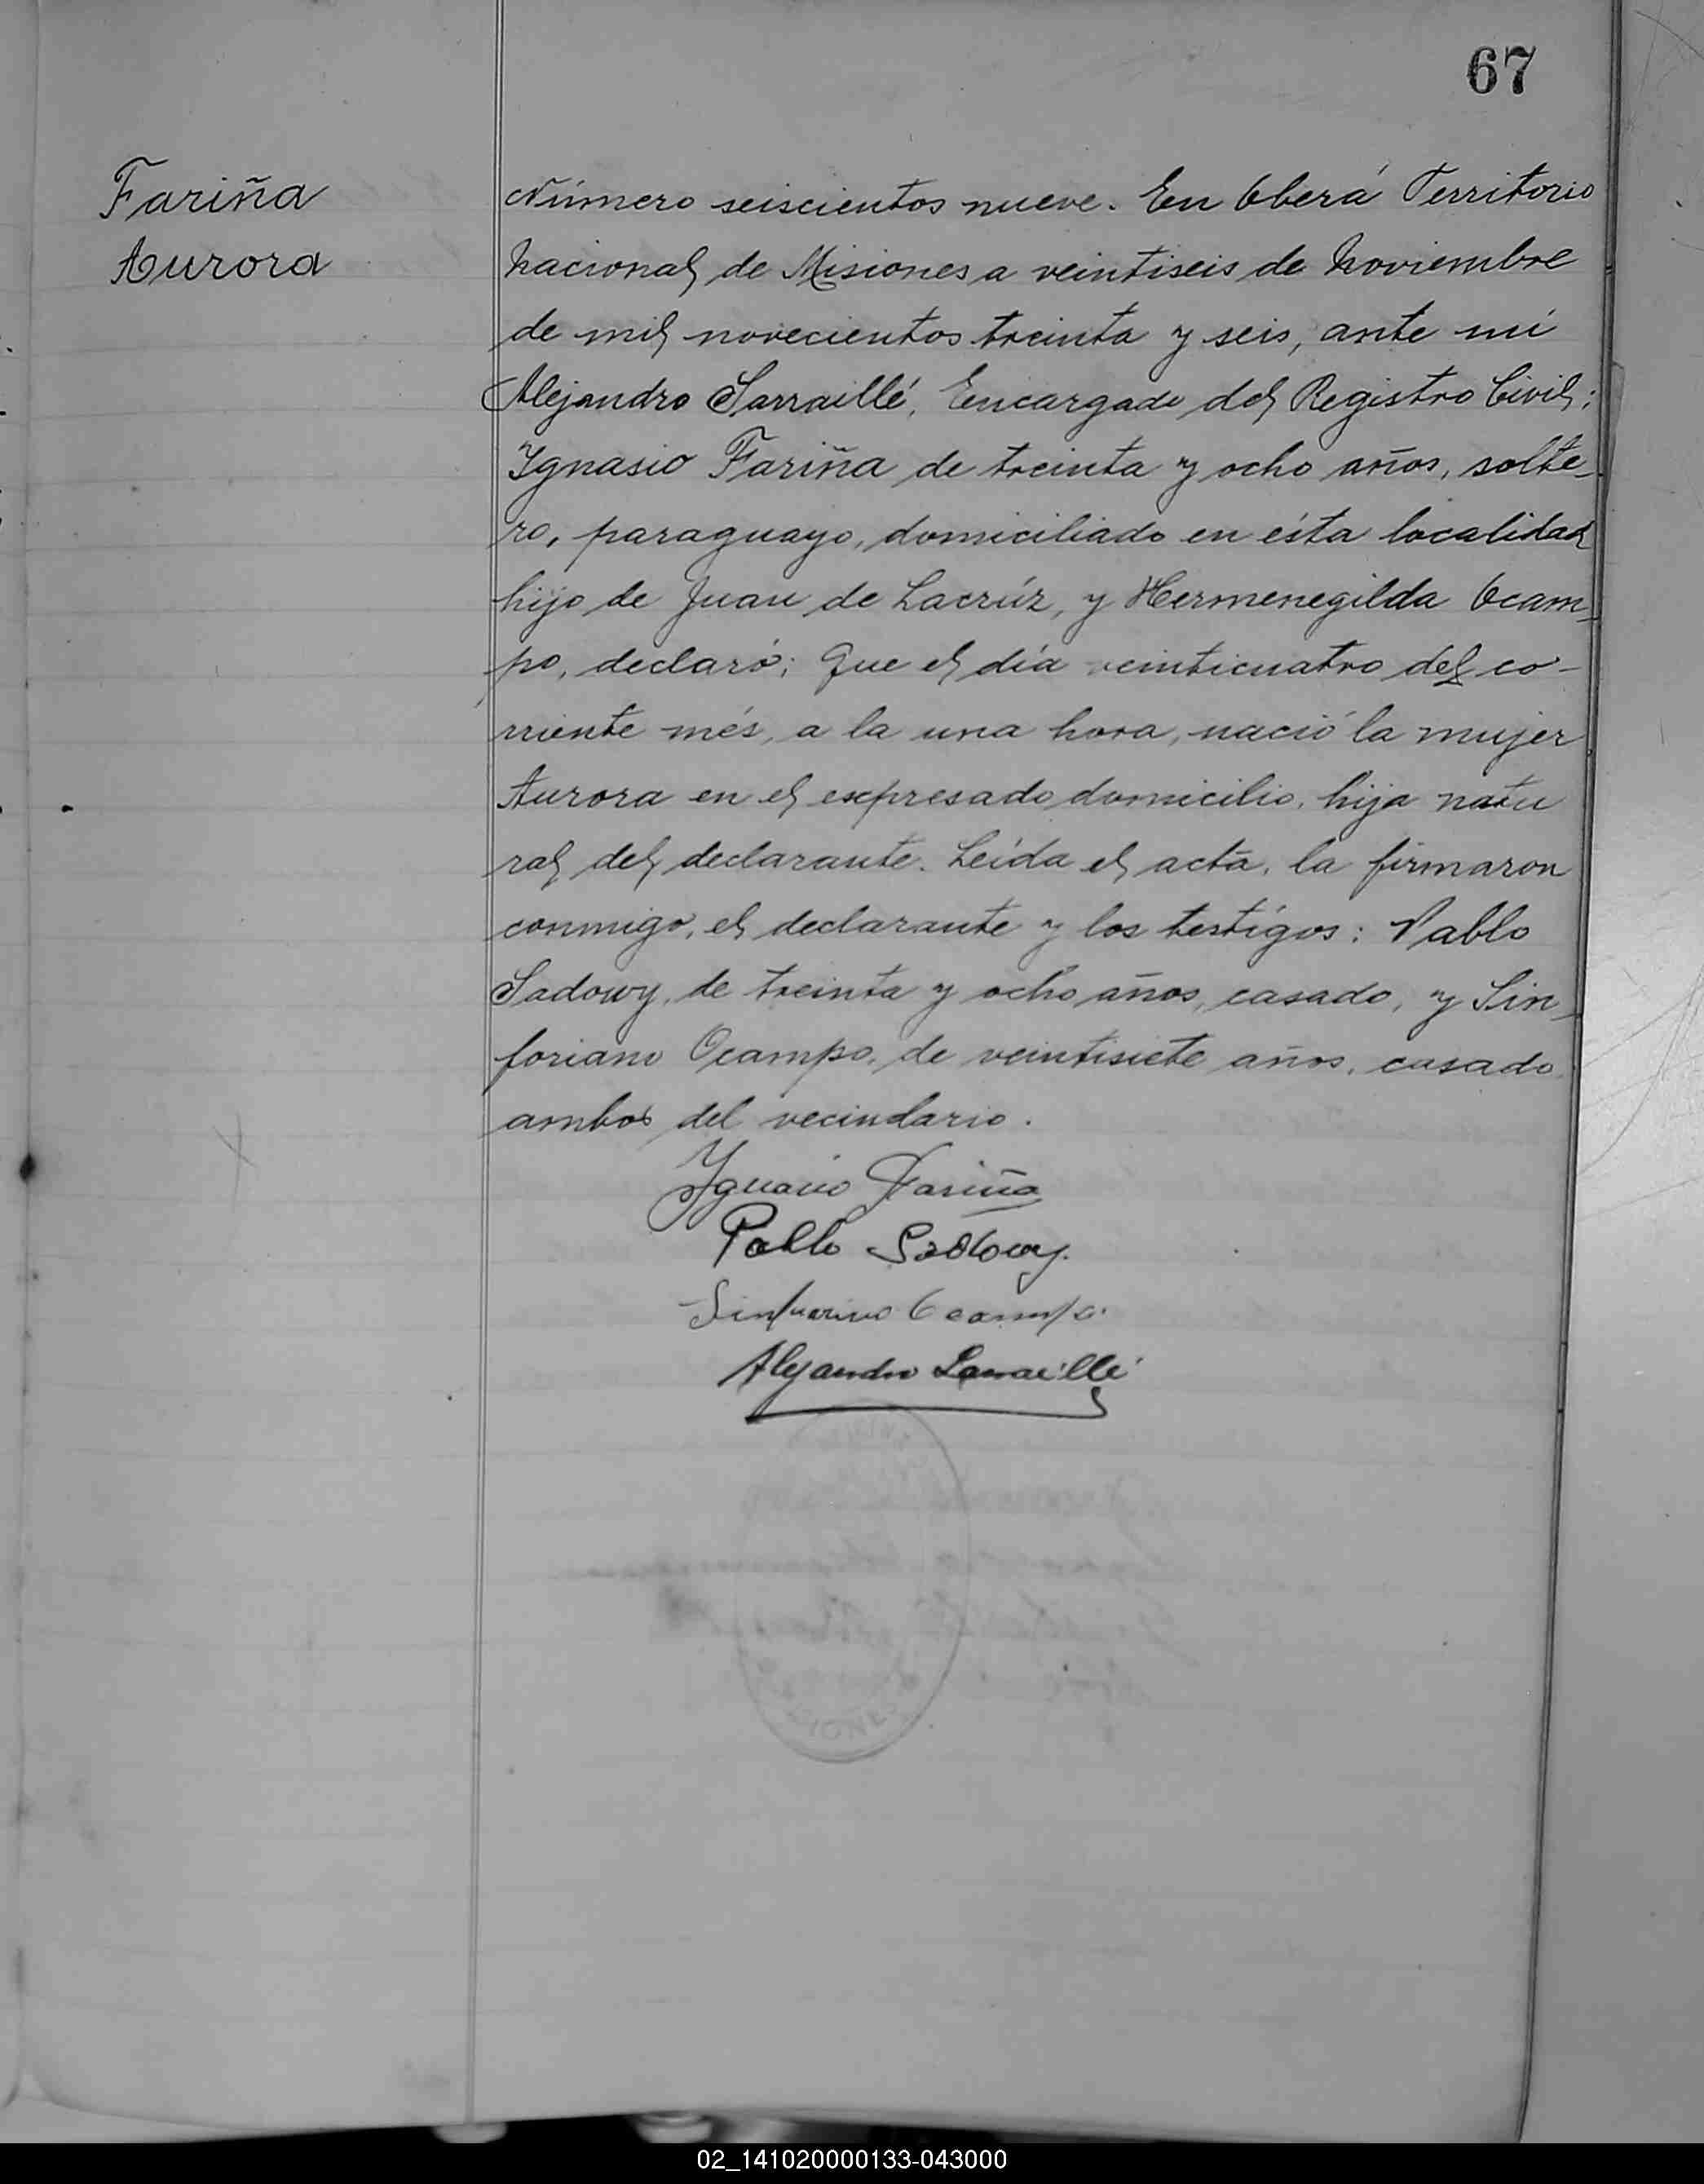 67
Fariña
Aurora
Número seiscientos nueve. En Oberá Territorio
Nacional de Misiones a veintiseis de Noviembre
de mil novecientos treinta y seis, ante mí
Alejandro Sarraillé, Encargado del Registro Civil:
Ygnasio Fariña de treinta y ocho años, solte-
ro, paraguayo, domiciliado en ésta localidad
hijo de Juan de Lacrúz, y Hermenegilda Ocam-
po, declaró; Que el día veinticuatro del co-
rriente més, a la una hora, nació la mujer
Aurora en el expresado domicilio, hija natu
ral del declarante. Leída el acta, la firmaron
conmigo, el declarante y los testígos: Pablo
Sadowy, de treinta y ocho años, casado, y Sin-
foriano Ocampo, de veintisiete años, casado
ambos del vecindario.
Ygnacio Fariña
Pablo Sadowy.
Ocampo.
Alejandro Sarraillé
02_141020000133-043000